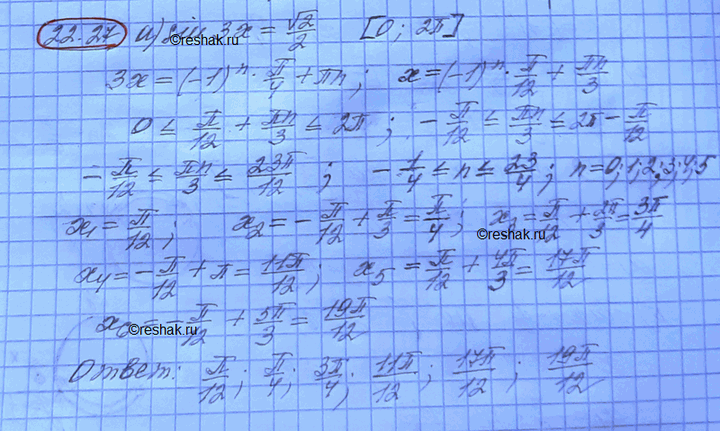 22.27 а) sin 3x = √2/2 [0; 2π]
©reshak.ru
3x = (-1)ⁿ · π/4 + πn; x = (-1)ⁿ · π/12 + πn/3
0 ≤ π/12 + πn/3 ≤ 2π; -π/12 ≤ πn/3 ≤ 2π - π/12
-π/12 ≤ πn/3 ≤ 23π/12; -1/4 ≤ n ≤ 23/4; n = 0; 1; 2; 3; 4; 5
x₁ = π/12; x₂ = -π/12 + π/3 = π/4; x₃ = π/12 + 2π/3 = 3π/4
©reshak.ru
x₄ = -π/12 + π = 11π/12; x₅ = π/12 + 4π/3 = 17π/12
x₆ = -π/12 + 5π/3 = 19π/12
©reshak.ru
Ответ: π/12; π/4; 3π/4; 11π/12; 17π/12; 19π/12